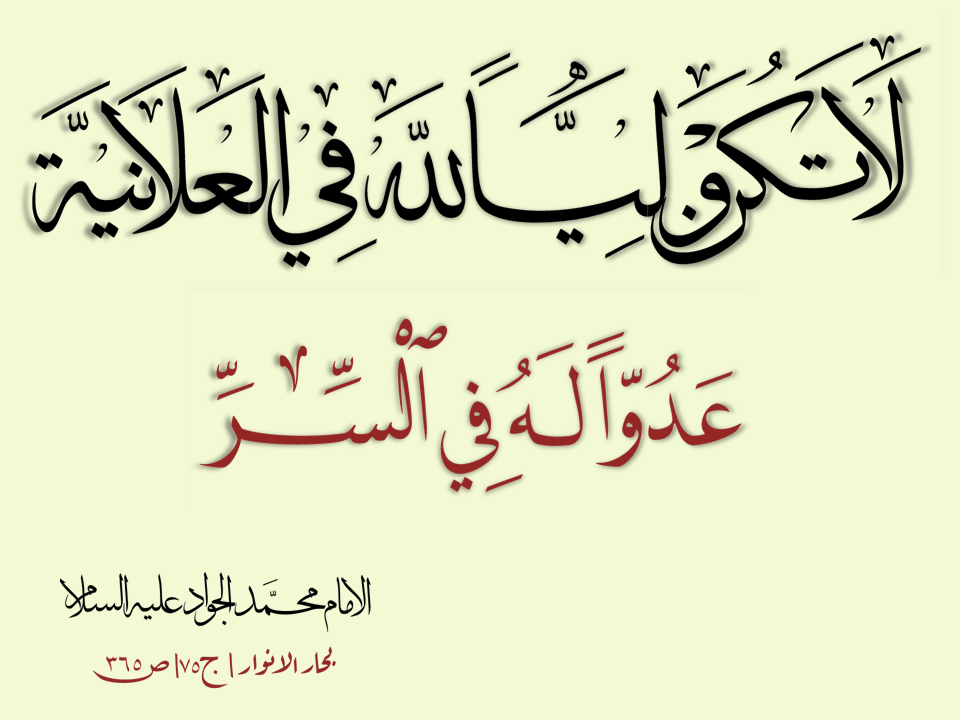 لَا تَكُنْ وَلِيًّا لِلَّهِ فِي الْعَلَانِيَةِ
عَدُوًّا لَهُ فِي ٱلْسِّرِّ
الامام محمّد الجواد عليه السلام
بحار الانوار | ج٧٥ | ص٣٦٥